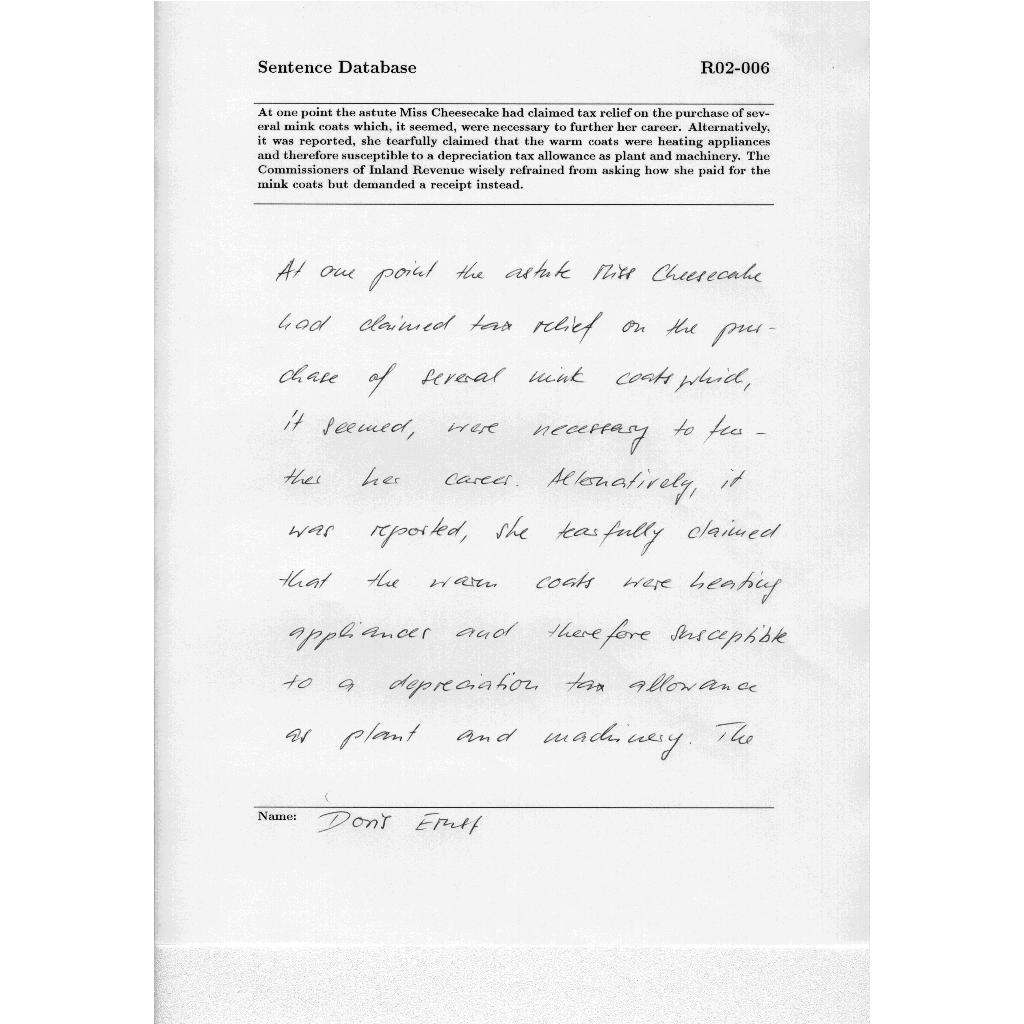 Sentence Database R02-006
At one point the astute Miss Cheesecake had claimed tax relief on the purchase of sev-
eral mink coats which, it seemed, were necessary to further her career. Alternatively,
it was reported, she tearfully claimed that the warm coats were heating appliances
and therefore susceptible to a depreciation tax allowance as plant and machinery. The
Commissioners of Inland Revenue wisely refrained from asking how she paid for the
mink coats but demanded a receipt instead.
At one point the astute Miss Cheesecake
had claimed tax relief on the pur-
chase of several mink coats which,
it seemed, were necessary to fur-
ther her career. Alternatively, it
was reported, she tearfully claimed
that the warm coats were heating
appliances and therefore susceptible
to a depreciation tax allowance
as plant and machinery. The
Name: Doris Ernst